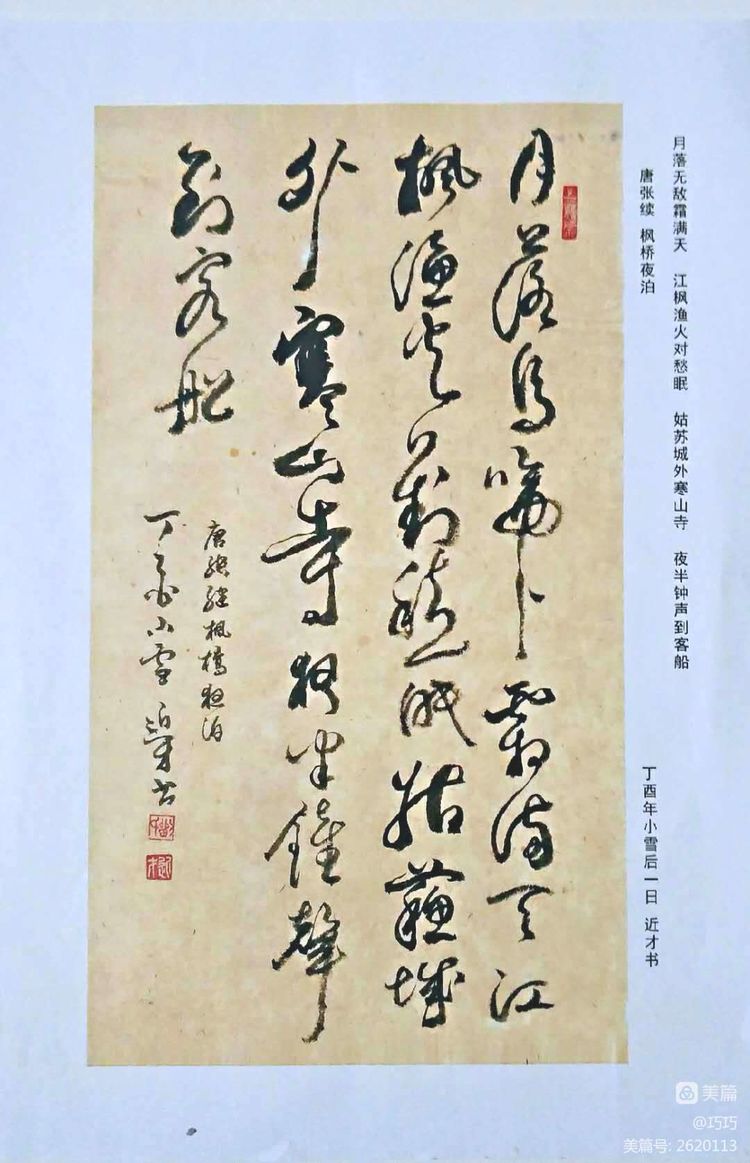 月落无敌霜满天 江枫渔火对愁眠 姑苏城外寒山寺 夜半钟声到客船
唐张续 枫桥夜泊
丁酉年小雪后一日 近才书
月落烏啼霜滿天江
楓漁火對愁眠姑蘇城
外寒山寺夜半鐘聲
到客船
唐張繼楓橋夜泊
丁酉小雪 近才书
美篇
@巧巧
美篇号: 2620113